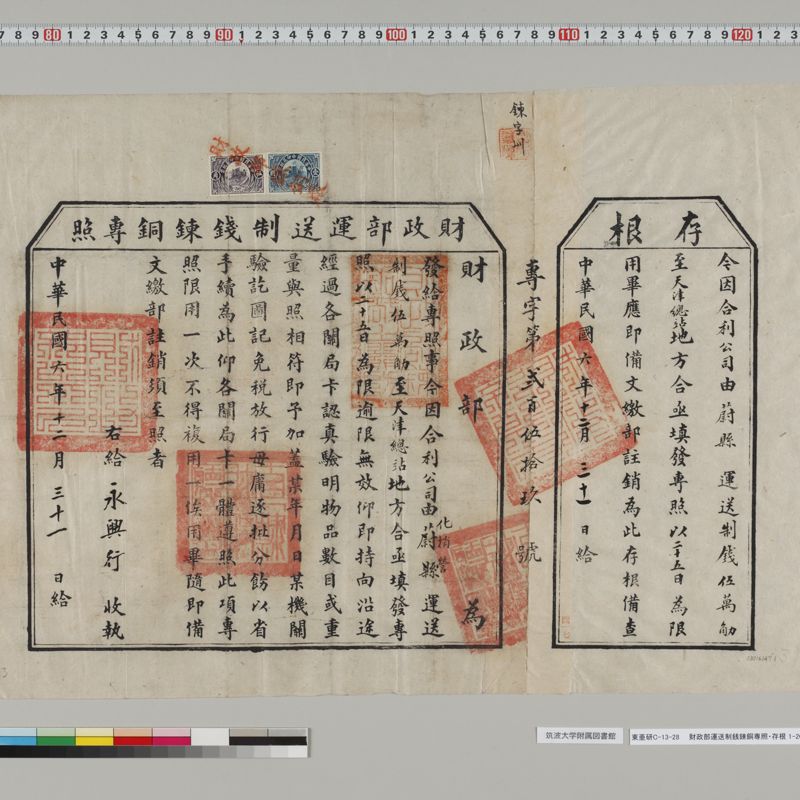 存根
今因合利公司由蔚縣運送制錢伍萬觔
至天津總站地方合亟填發專照以二十五日為限
用畢應即備文繳部註銷為此存根備查
中華民國六年十二月三十一日給
鍊字圳
專字第貳百伍拾玖號
財政部運送制錢鍊銅專照
財政部為
發給專照事今因合利公司由蔚縣運送
化稍營
制錢伍萬觔至天津總站地方合亟填發專
照以二十五日為限逾限無效仰即持向沿途
經過各關局卡認真驗明物品數目或重
量與照相符即予加蓋某年月日某機關
驗訖圖記免稅放行毋庸逐批分飭以省
手續為此仰各關局卡一體遵照此項專
照限用一次不得複用一俟用畢隨即備
文繳部註銷須至照者
右給永興行收執
中華民國六年十二月三十一日給
筑波大学附属図書館
東亜研C-13-28 財政部運送制銭錬銅専照・存根